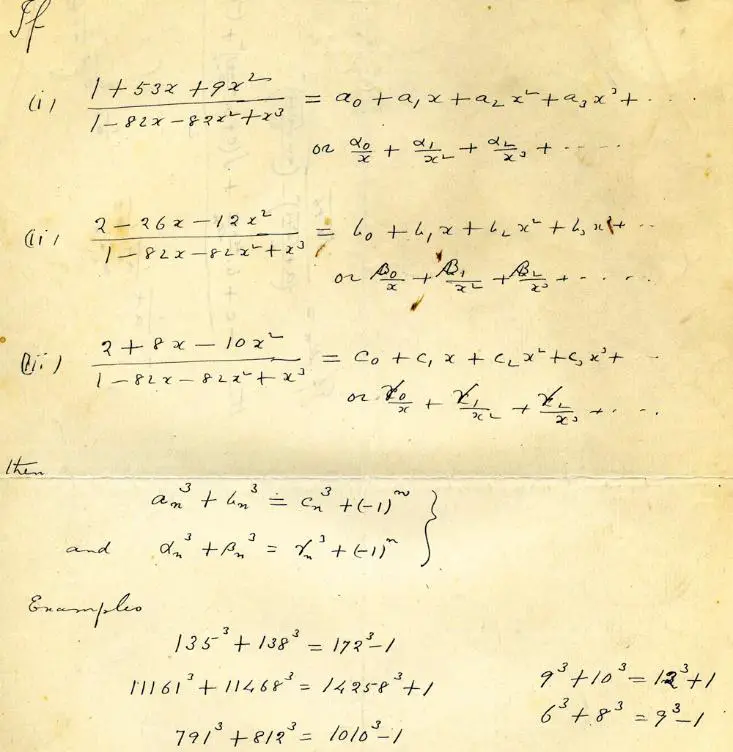 If
(i) (1 + 53x + 9x²)/(1 - 82x - 82x² + x³) = a₀ + a₁x + a₂x² + a₃x³ + ....
or α₀/x + α₁/x² + α₂/x³ + .....
(ii) (2 - 26x - 12x²)/(1 - 82x - 82x² + x³) = b₀ + b₁x + b₂x² + b₃x³ + ...
or β₀/x + β₁/x² + β₂/x³ + .....
(iii) (2 + 8x - 10x²)/(1 - 82x - 82x² + x³) = c₀ + c₁x + c₂x² + c₃x³ + ..
or γ₀/x + γ₁/x² + γ₂/x³ + ....
then
aₙ³ + bₙ³ = cₙ³ + (-1)ⁿ
and αₙ³ + βₙ³ = γₙ³ + (-1)ⁿ }
Examples
135³ + 138³ = 172³ - 1
11161³ + 11468³ = 14258³ + 1
791³ + 812³ = 1010³ - 1
9³ + 10³ = 12³ + 1
6³ + 8³ = 9³ - 1